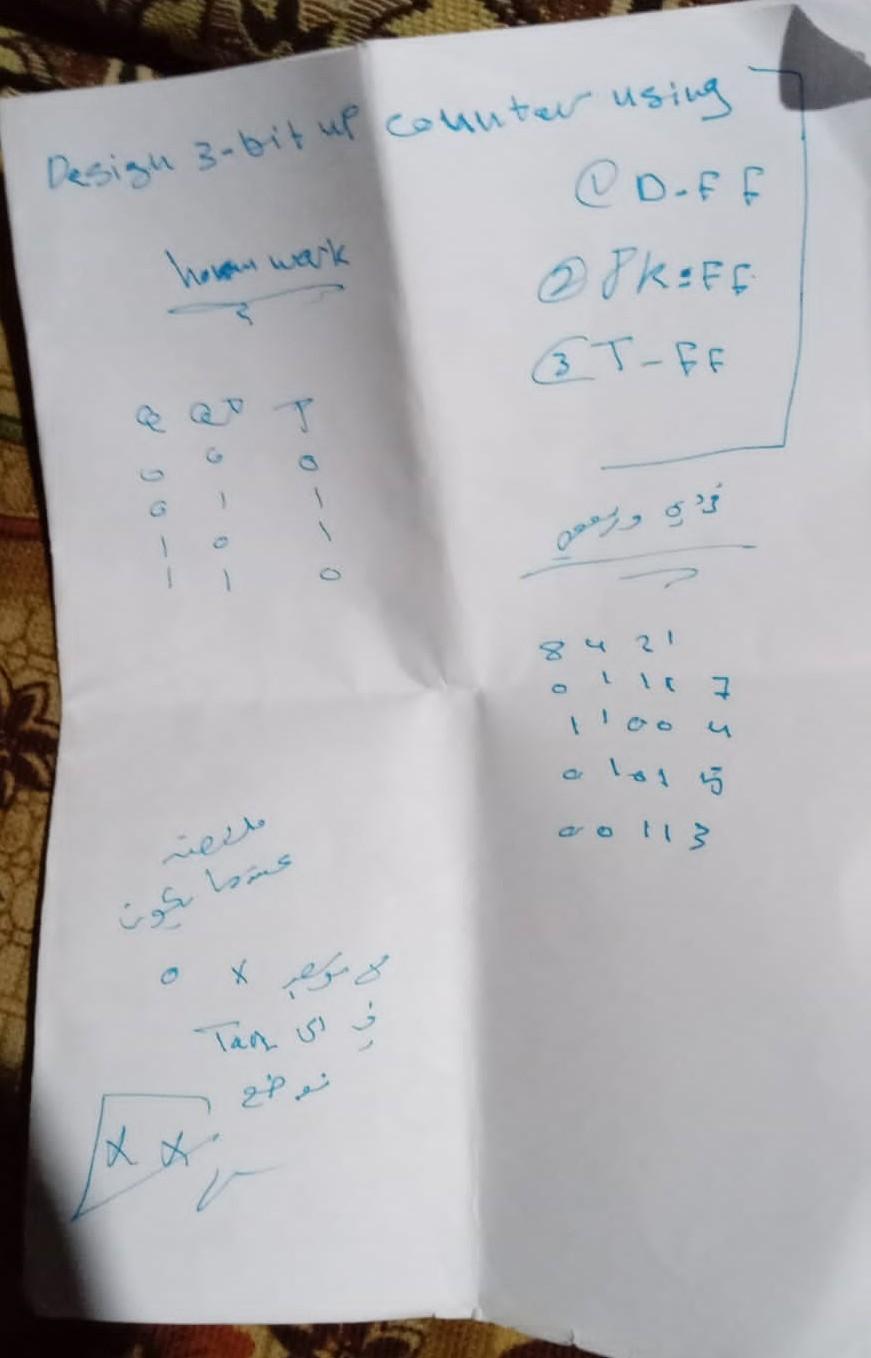 Design 3-bit up counter using
① D-FF
② JK-FF
③ T-FF
home work
Q Q+ T
0 0 0
0 1 1
1 0 1
1 1 0
8 4 2 1
0 1 1 1 7
1 1 0 0 4
0 1 0 1 5
0 0 1 1 3
ملاحظه
عندما يكون
لا يوجد x 0
في اي
نوضع
X X